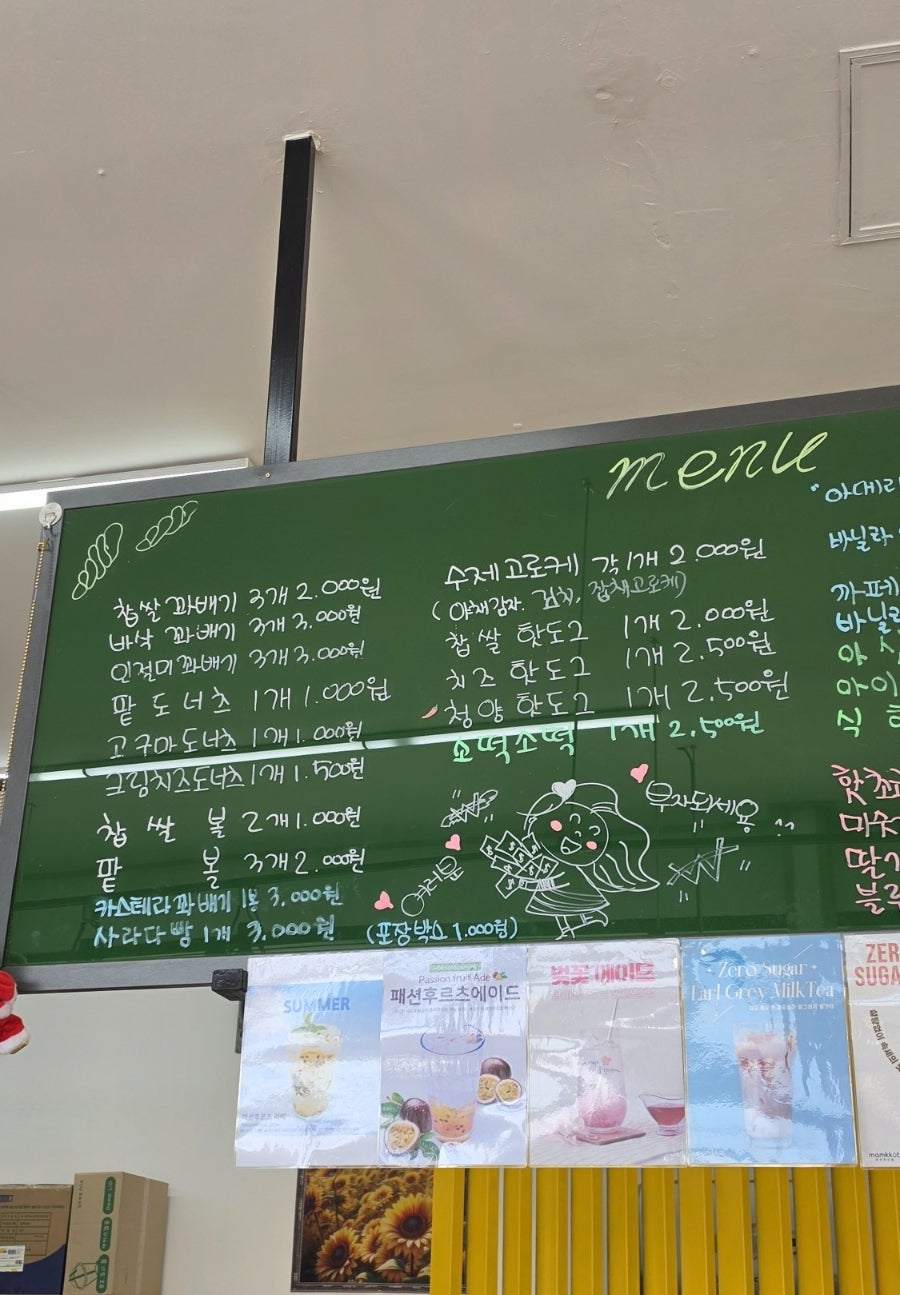 menu
찹쌀 꽈배기 3개 2.000원
바삭 꽈배기 3개 3.000원
인절미 꽈배기 3개 3.000원
팥 도너츠 1개 1.000원
고구마도너츠 1개 1.000원
크림치즈도너츠 1개 1.500원
찹 쌀 볼 2개 1.000원
팥 볼 3개 2.000원
카스테라 꽈배기 1봉 3.000원
사라다빵 1개 3.000원
수제 고로케 각 1개 2.000원
(야채감자. 김치, 잡채고로케)
찹쌀 핫도그 1개 2.000원
치즈 핫도그 1개 2.500원
청양 핫도그 1개 2.500원
소떡소떡 1개 2.500원
여러분
부자되세용
(포장박스 1.000원)
바닐라
까페
바닐라
아이
식
핫쵸
미숫
딸기
블루
SUMMER
Passion fruit Ade
패션후르츠에이드
벚꽃 에이드
Zero Sugar
Earl Grey Milk Tea
ZERO
SUGAR